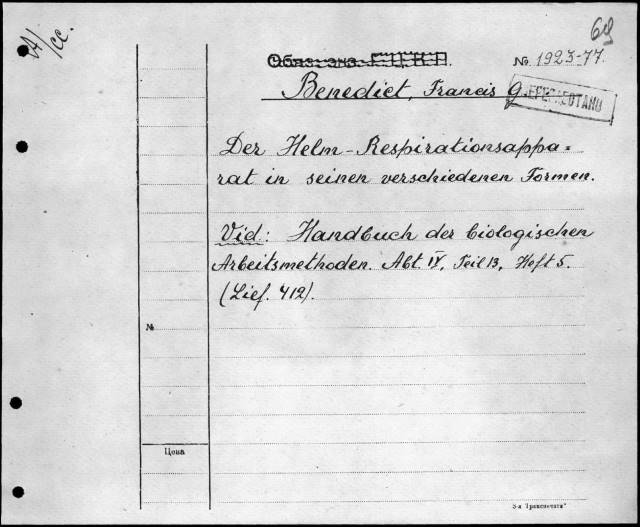 69
cc.
№ 1923-77.
Benedict, Francis G.
Der Helm-Respirationsappa=
rat in seinen verschiedenen Formen.
Vid: Handbuch der biologischen
Arbeitsmethoden. Abt IV, Teil 13, Heft 5.
(Lief. 412).
№
Цена
3-я